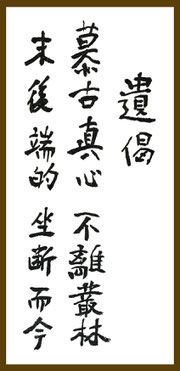 遺偈
慕古真心 不離叢林
末後端的 坐断而今